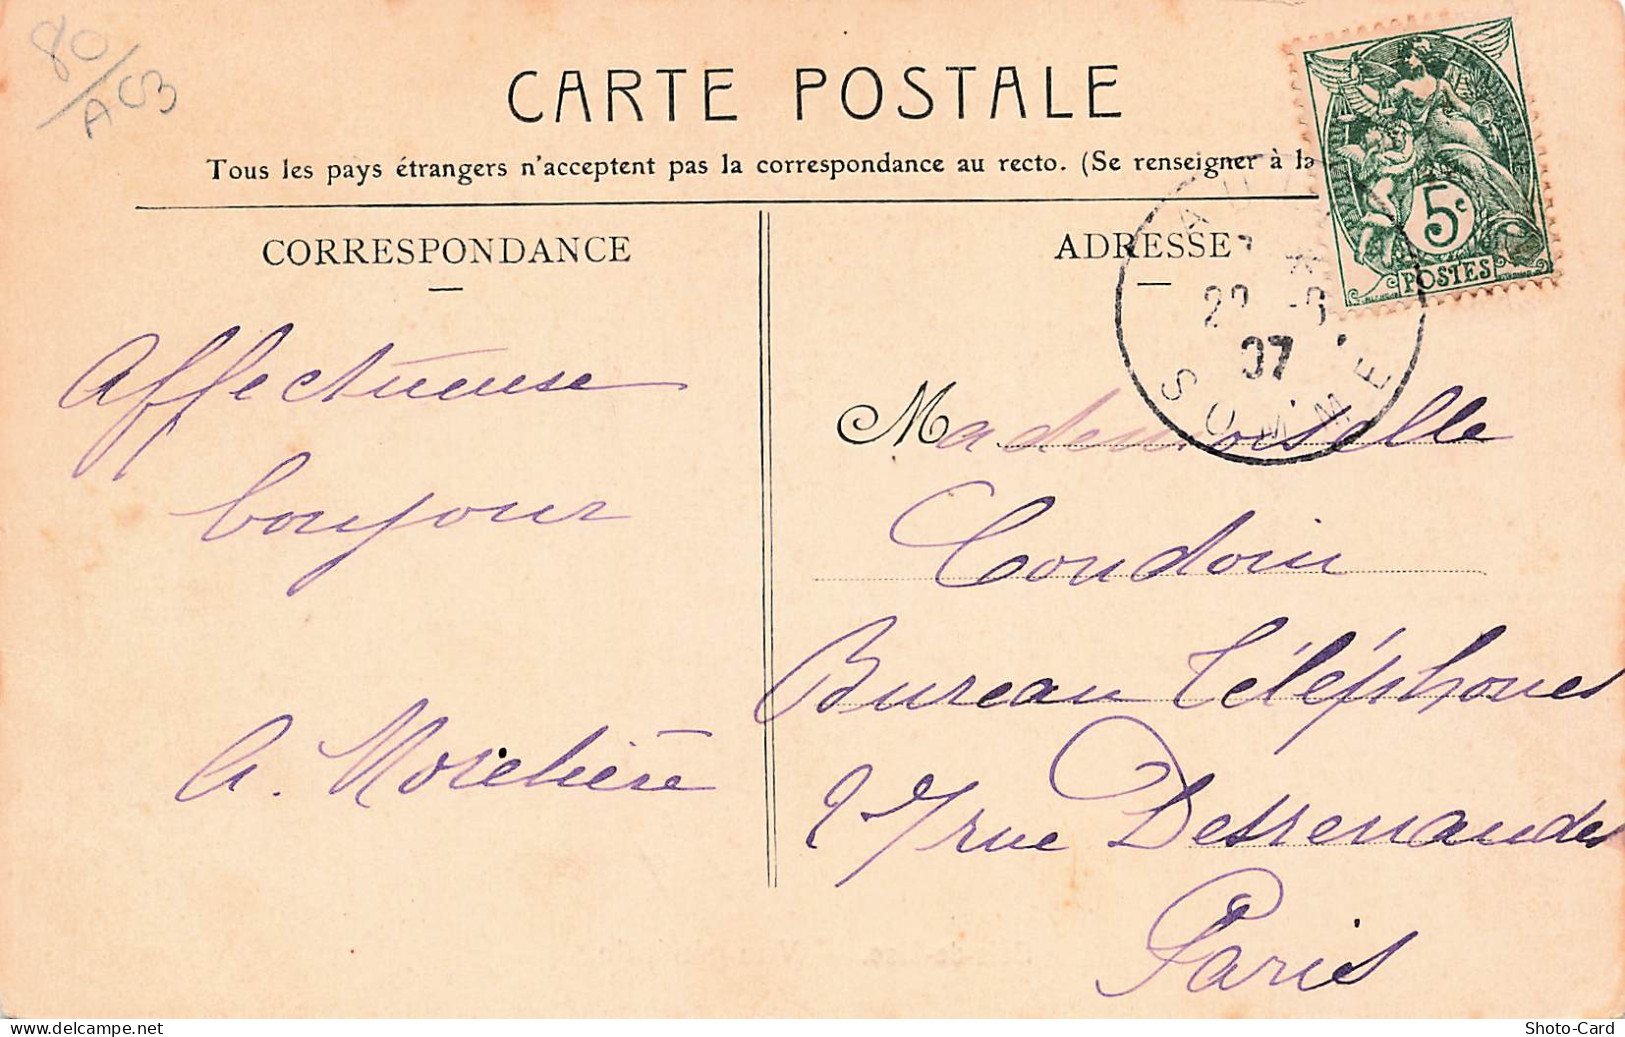 80/
A C3
CARTE POSTALE
Tous les pays étrangers n'acceptent pas la correspondance au recto. (Se renseigner à la
CORRESPONDANCE
ADRESSE
RÉPUBLIQUE FRANÇAISE
5c
POSTES
07
SOMME
Affectueuse
bonjour
Mademoiselle
Coudoin
Bureau Téléphones
rue Desrenaudes
Paris
www.delcampe.net
Shoto-Card